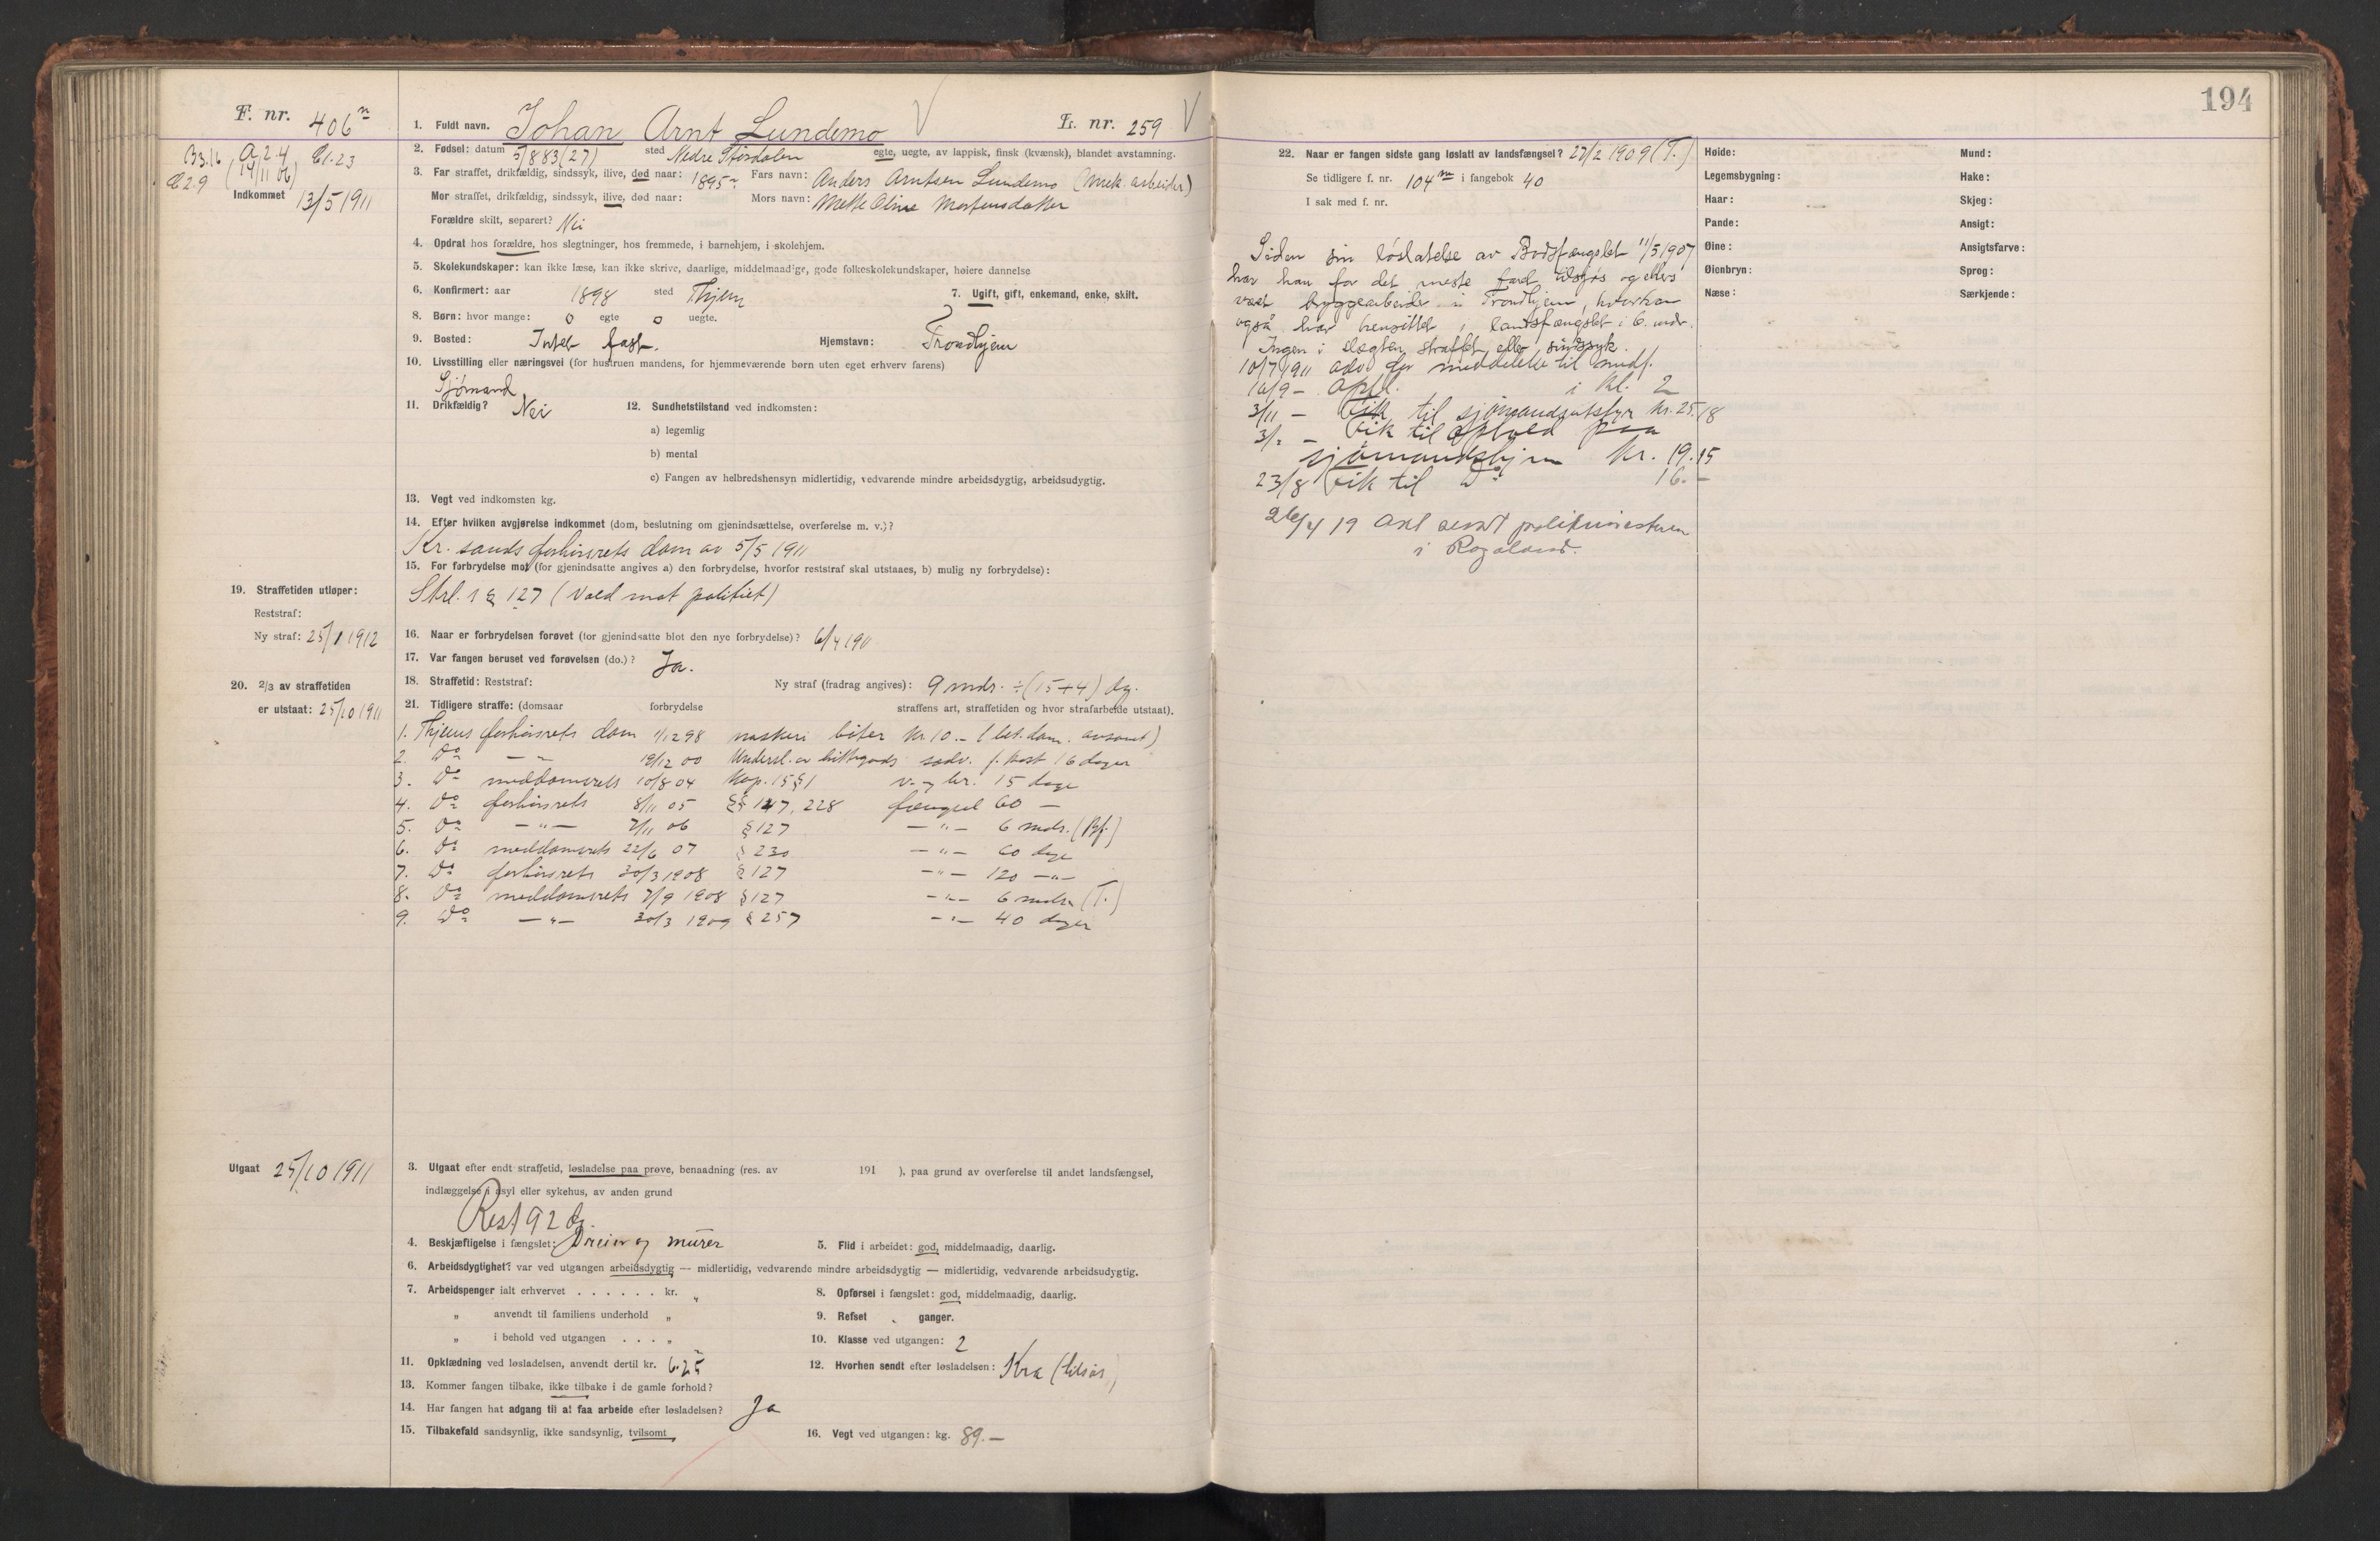 194
F. nr. 406
B3.16 A 2.4 C1.23
Æ 2.9 (14/11 06)
Indkommet 13/5 1911
1. Fuldt navn. Johan Arnt Lundemo L. nr. 259
2. Fødsel: datum 5/8 83 (27) sted Nedre Stjørdalen egte, uegte, av lappisk, finsk (kvænsk), blandet avstamning.
3. Far straffet, drikfældig, sindssyk, ilive, død naar: 1895 Fars navn: Anders Arntsen Lundemo (mek. arbeider)
Mor straffet, drikfældig, sindssyk, ilive, død naar: Mors navn: Mette Oline Mortensdatter
Forældre skilt, separert? Nei
4. Opdrat hos forældre, hos slegtninger, hos fremmede, i barnehjem, i skolehjem.
5. Skolekundskaper: kan ikke læse, kan ikke skrive, daarlige, middelmaadige, gode folkeskolekundskaper, høiere dannelse
6. Konfirmert: aar 1898 sted Thjem 7. Ugift, gift, enkemand, enke, skilt.
8. Børn: hvor mange: 0 egte 0 uegte.
9. Bosted: Intet fast. Hjemstavn: Trondhjem
10. Livsstilling eller næringsvei (for hustruen mandens, for hjemmeværende børn uten eget erhverv farens)
Sjømand
11. Drikfældig? Nei 12. Sundhetstilstand ved indkomsten:
a) legemlig
b) mental
c) Fangen av helbredshensyn midlertidig, vedvarende mindre arbeidsdygtig, arbeidsudygtig.
13. Vegt ved indkomsten kg.
14. Efter hvilken avgjørelse indkommet (dom, beslutning om gjenindsættelse, overførelse m. v.)?
Kr. sands forhørsrets dom av 5/5 1911
15. For forbrydelse mot (for gjenindsatte angives a) den forbrydelse, hvorfor reststraf skal utstaaes, b) mulig ny forbrydelse):
Strl. § 127 (Vold mot politiet)
19. Straffetiden utløper:
Reststraf:
Ny straf: 25/1 1912
16. Naar er forbrydelsen forøvet (for gjenindsatte blot den nye forbrydelse)? 6/4 1911
17. Var fangen beruset ved forøvelsen (do.)? Ja.
18. Straffetid: Reststraf: Ny straf (fradrag angives): 9 mdr. ÷ (15+4) dg.
20. 2/3 av straffetiden
er utstaat: 25/10 1911
21. Tidligere straffe: (domsaar forbrydelse straffens art, straffetiden og hvor strafarbeide utstaat).
1. Thjems forhørsrets dom 1/12 98 naskeri bøter kr 10.- (bet. dom. avsonet)
2. Do — " — 19/12 00 Undersl. av hittegods sedv. f. kost 16 dager
3. Do meddomsrets 10/8 04 Kap. 15 § 1 v. og br. 15 dage
4. Do forhørsrets 8/11 05 §§ 127, 228 fængsel 60 —
5. Do — " — 7/11 06 § 127 — " — 6 mdr. (Bf.)
6. Do meddomsrets 22/6 07 § 230 — " — 60 dage
7. Do forhørsrets 30/3 1908 § 127 — " — 120 — " —
8. Do meddomsrets 7/9 1908 § 127 — " — 6 mdr. (T.)
9. Do — " — 30/3 1909 § 257 — " — 40 dager
Utgaat 25/10 1911
3. Utgaat efter endt straffetid, løsladelse paa prøve, benaadning (res. av 191 ), paa grund av overførelse til andet landsfængsel,
indlæggelse i asyl eller sykehus, av anden grund
Rest 92 dg.
4. Beskjæftigelse i fængslet: Dreier og murer 5. Flid i arbeidet: god, middelmaadig, daarlig.
6. Arbeidsdygtighet: var ved utgangen arbeidsdygtig — midlertidig, vedvarende mindre arbeidsdygtig — midlertidig, vedvarende arbeidsudygtig.
7. Arbeidspenger ialt erhvervet . . . . . . kr. " 8. Opførsel i fængslet: god, middelmaadig, daarlig.
" anvendt til familiens underhold " 9. Refset ganger.
" i behold ved utgangen . . . " 10. Klasse ved utgangen: 2
11. Opklædning ved løsladelsen, anvendt dertil kr. 6.25 12. Hvorhen sendt efter løsladelsen: Kra (tilsjøs)
13. Kommer fangen tilbake, ikke tilbake i de gamle forhold?
14. Har fangen hat adgang til at faa arbeide efter løsladelsen? Ja
15. Tilbakefald sandsynlig, ikke sandsynlig, tvilsomt 16. Vegt ved utgangen: kg. 89.—
22. Naar er fangen sidste gang løslatt av landsfængsel? 27/2 1909 (T.)
Se tidligere f. nr. 104 m i fangebok 40
I sak med f. nr.
Siden sin løslatelse av Bodsfængslet 11/5 1907
har han for det meste faret tilsjøs og ellers
vært bryggearbeider i Trondhjem, hvor han
også har hensittet i landsfængslet i 6 mdr.
Ingen i slægten straffet eller sindssyk.
10/7 1911 adv. for meddelelse til medf.
10/9 - Opfl. i Kl. 2
3/11 — Fik til sjømandsutstyr kr. 25.18
3/2 — Fik til ophold paa
sjømandshjem kr. 19.15
23/8 Fik til Do 16.—
26/4 19 Anl sendt politimesteren
i Rogaland.
Høide: Mund:
Legemsbygning: Hake:
Haar: Skjeg:
Pande: Ansigt:
Øine: Ansigtsfarve:
Øienbryn: Sprog:
Næse: Særkjende: